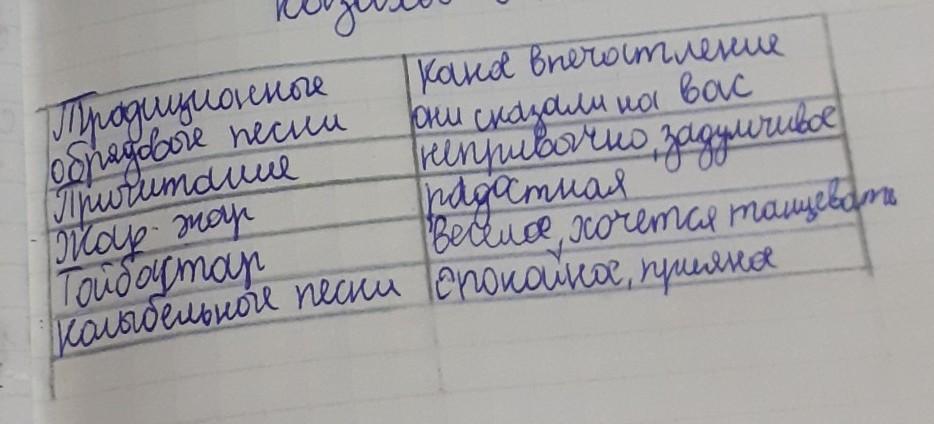 Традиционные
обрядовые песни
какое впечатление
они сказали на вас
Причитание
непривычно, задумчивое
Жар-жар
радостная
Тойбастар
Веселое, хочется танцевать
Колыбельные песни
спокойное, прияное